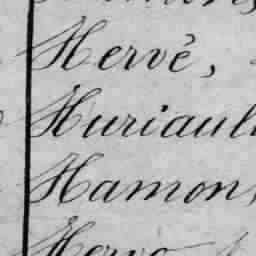 Hervé,
Huriaul
Hamon,
Hervo